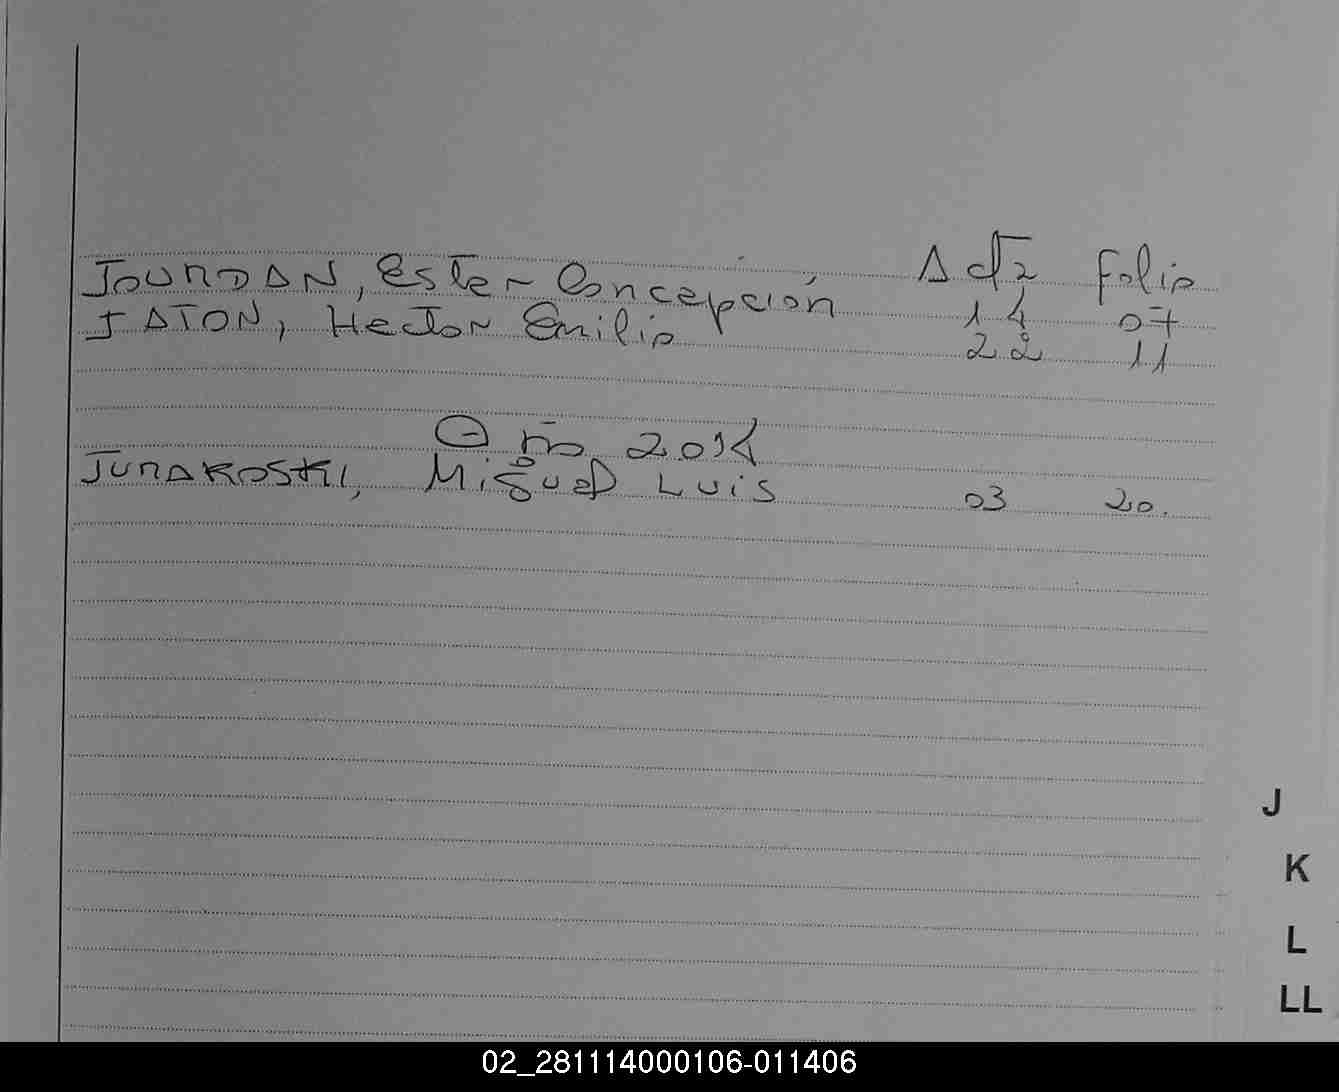 Acta Folio
JOURDAN, Ester Concepción 14 07
JATON, Hector Emilio 22 11
Año 2014
JURAKOSKI, Miguel Luis 03 20.
J
K
L
LL
02_281114000106-011406